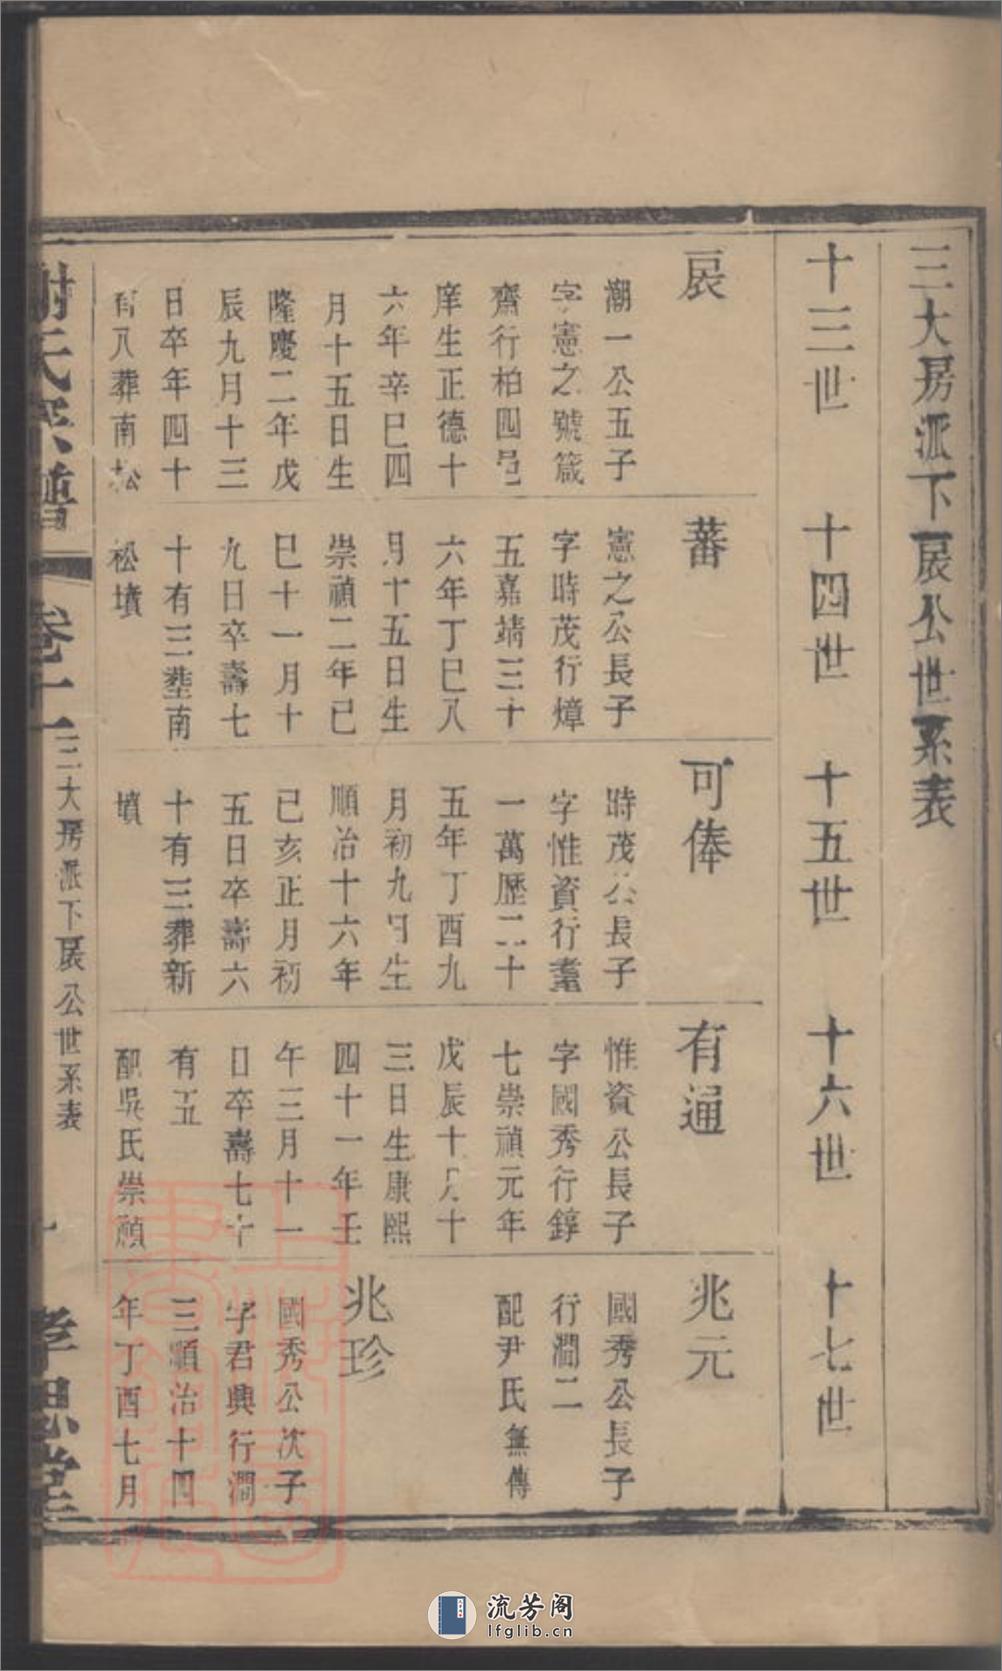 三大房派下扆公世系表
十三世
十四世
十五世
十六世
十七世
扆
潮一公五子
字憲之號箴
齋行柏四邑
庠生正德十
六年辛巳四
月十五日生
隆慶二年戊
辰九月十三
日卒年四十
有八葬南松
蕃
憲之公長子
字時茂行煒
五嘉靖三十
六年丁巳八
月十五日生
崇禎二年己
巳十一月十
九日卒壽七
十有三塟南
松墳
可俸
時茂公長子
字惟資行耄
一萬歷二十
五年丁酉九
月初九日生
順治十六年
己亥正月初
五日卒壽六
十有三葬新
墳
有通
惟資公長子
字國秀行錞
七崇禎元年
戊辰十月十
三日生康熙
四十一年壬
午三月十一
日卒壽七十
有五
配吳氏崇禎
兆元
國秀公長子
行澗二
配尹氏無傳
兆珍
國秀公次子
字君興行澗
三順治十四
年丁酉七月
謝氏宗譜
卷十一
三大房派下扆公世系表
十
孝思堂
流芳阁
lfglib.cn